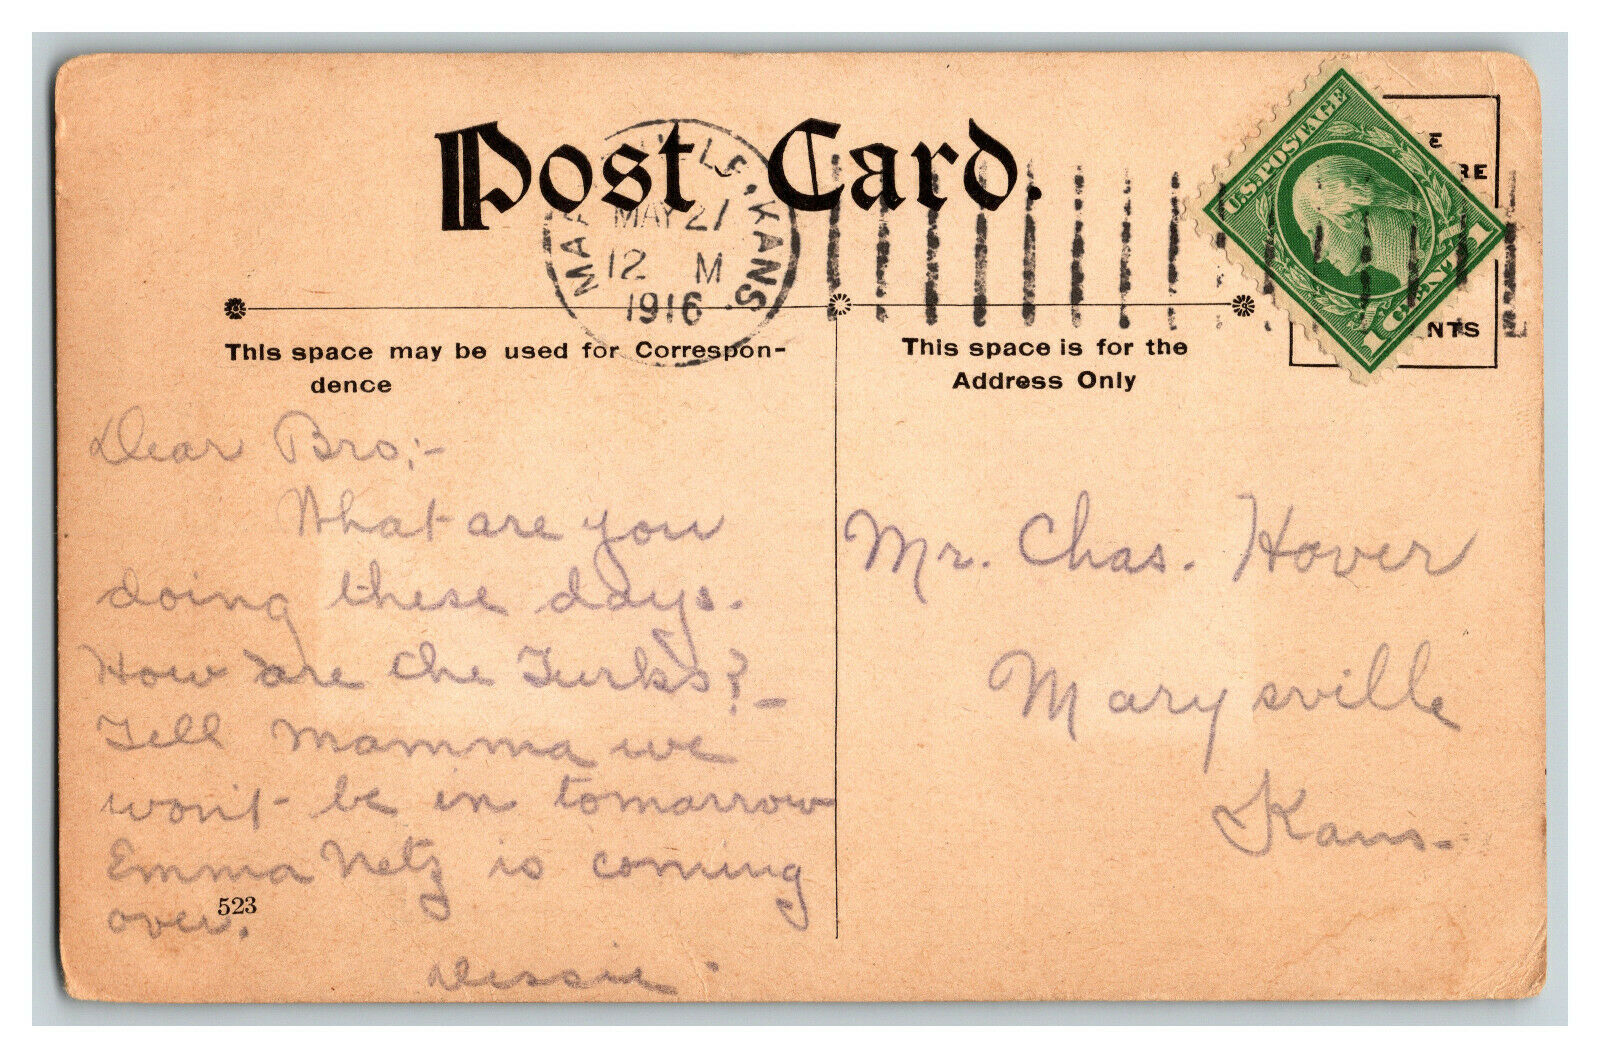 Post Card.
MAY 27
12 M
1916
KANS.
U.S. POSTAGE
1 CENT 1
E
RE
NTS
This space may be used for Correspon-
dence
This space is for the
Address Only
Dear Bro;-
What are you
doing these days.
How are the Turks?-
Tell Mamma we
won't be in tomarrow
Emma Netz is coming
over.
523
Dessie.
Mr. Chas. Hover
Marysville
Kans.